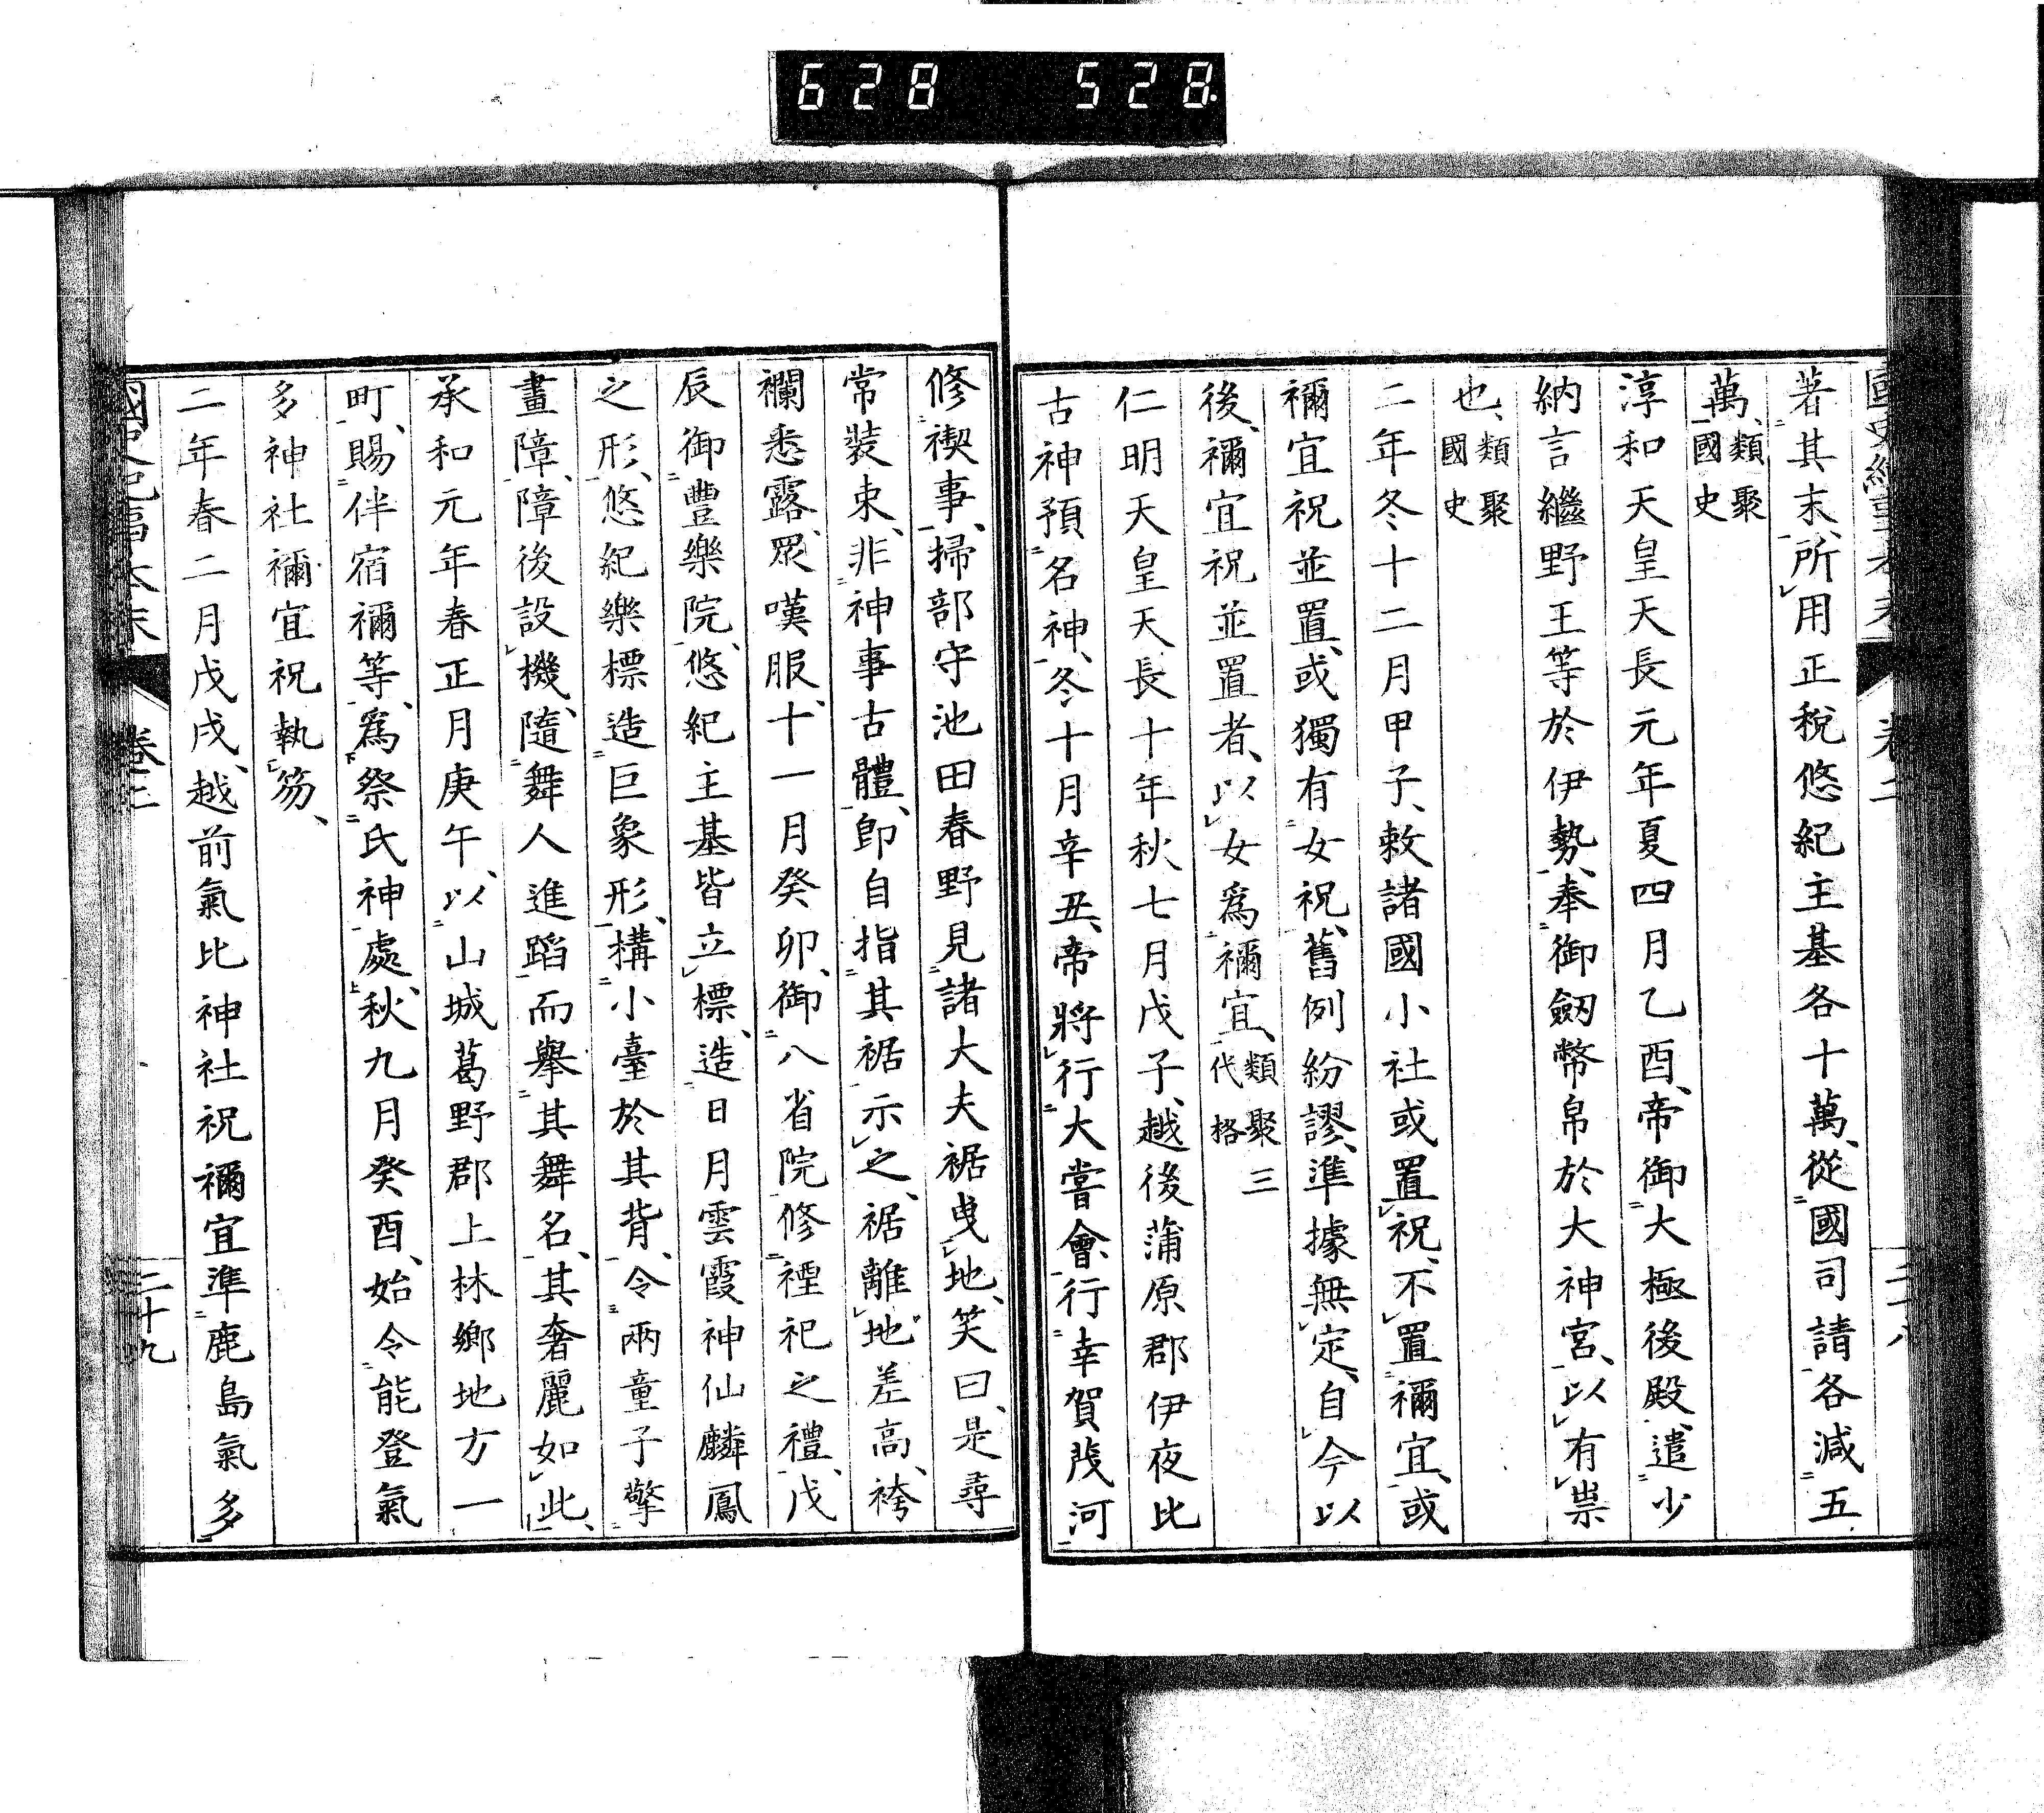 628 528
著其末、所用正稅悠紀主基各十萬、從國司請各減五
萬、類聚國史
淳和天皇天長元年夏四月乙酉、帝御大極後殿、遣少
納言繼野王等於伊勢、奉御劔幣帛於大神宮、以有祟
也、類聚國史
二年冬十二月甲子、敕諸國小社或置祝、不置禰宜、或
禰宜祝並置、或獨有女祝、舊例紛謬、準據無定、自今以
後、禰宜祝並置者、以女爲禰宜、類聚三代格
仁明天皇天長十年秋七月戊子、越後蒲原郡伊夜比
古神預名神、冬十月辛丑、帝將行大嘗會、行幸賀茂河
修禊事、掃部守池田春野見諸大夫裾曳地、笑曰、是尋
常裝束、非神事古體、卽自指其裾示之、裾離地差高、袴
襴悉露、眾嘆服、十一月癸卯、御八省院修禋祀之禮、戊
辰御豐樂院、悠紀主基皆立標、造日月雲霞神仙麟鳳
之形、悠紀樂標造巨象形、構小臺於其背、令兩童子擎
畫障、障後設機、隨舞人進蹈而擧其舞名、其奢麗如此、
承和元年春正月庚午、以山城葛野郡上林鄉地方一
町、賜伴宿禰等、爲祭氏神處、秋九月癸酉、始令能登氣
多神社禰宜祝執笏、
二年春二月戊戌、越前氣比神社祝禰宜準鹿島氣多
國史紀事本末 卷二 二十九